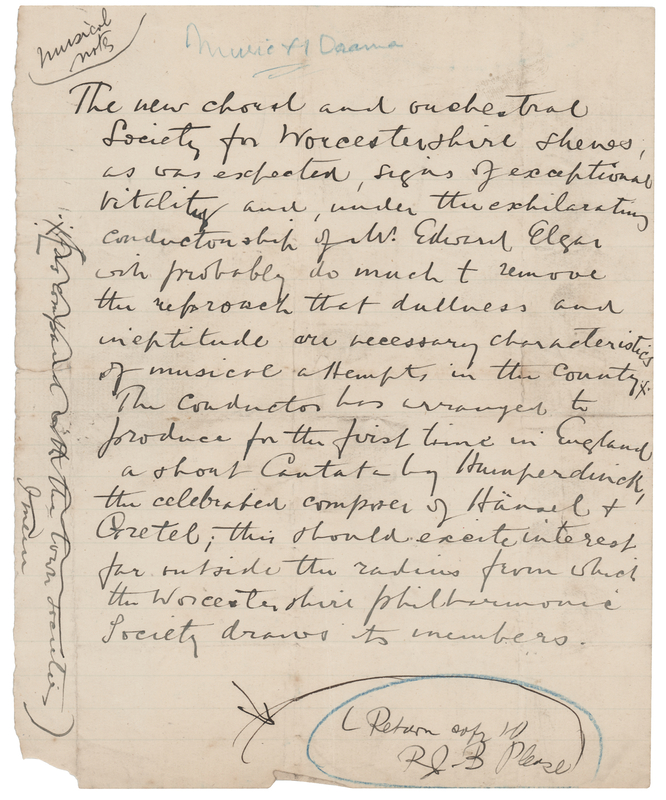 musical
notes
Music & Drama
The new choral and orchestral
Society for Worcestershire shews,
as was expected, signs of exceptional
vitality and, under the exhilarating
conductorship of Mr. Edward Elgar
will probably do much to remove
the reproach that dullness and
ineptitude are necessary characteristics
of musical attempts in the County x.
The Conductor has arranged to
produce for the first time in England
a short Cantata by Humperdinck,
the celebrated composer of Hänsel &
Gretel; this should excite interest
far outside the radius from which
the Worcestershire philharmonic
Society draws its members.
(as compared with the town societies
I mean)
(Return copy to
RJ.B Please